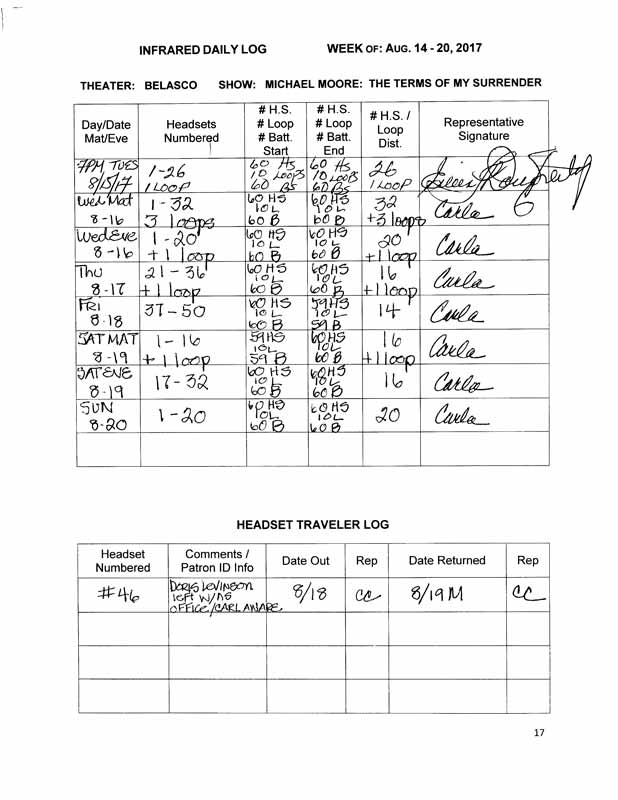 INFRARED DAILY LOG WEEK OF: AUG. 14 - 20, 2017
THEATER: BELASCO SHOW: MICHAEL MOORE: THE TERMS OF MY SURRENDER
Day/Date Mat/Eve | Headsets Numbered | # H.S. # Loop # Batt. Start | # H.S. # Loop # Batt. End | # H.S. / Loop Dist. | Representative Signature
7PM TUES 8/15/17 | 1-26 1 LOOP | 60 HS 10 LOOPS 60 BS | 60 HS 10 LOOPS 60 BS | 26 1 LOOP
Wed Mat 8-16 | 1-32 3 loops | 60 HS 10 L 60 B | 60 HS 10 L 60 B | 32 +3 loops | Carla
Wed Eve 8-16 | 1-20 +1 loop | 60 HS 10 L 60 B | 60 HS 10 L 60 B | 20 +1 loop | Carla
Thu 8-17 | 21-36 +1 loop | 60 HS 10 L 60 B | 60 HS 10 L 60 B | 16 +1 loop | Carla
FRI 8-18 | 37-50 | 60 HS 10 L 60 B | 59 HS 10 L 59 B | 14 | Carla
SAT MAT 8-19 | 1-16 +1 loop | 59 HS 10 L 59 B | 60 HS 10 L 60 B | 16 +1 loop | Carla
SAT EVE 8-19 | 17-32 | 60 HS 10 L 60 B | 60 HS 10 L 60 B | 16 | Carla
SUN 8-20 | 1-20 | 60 HS 10 L 60 B | 60 HS 10 L 60 B | 20 | Carla
HEADSET TRAVELER LOG
Headset Numbered | Comments / Patron ID Info | Date Out | Rep | Date Returned | Rep
#46 | DORIS LEVINSON left w/ HS OFFICE/CARL AWARE | 8/18 | CC | 8/19 M | CC
17